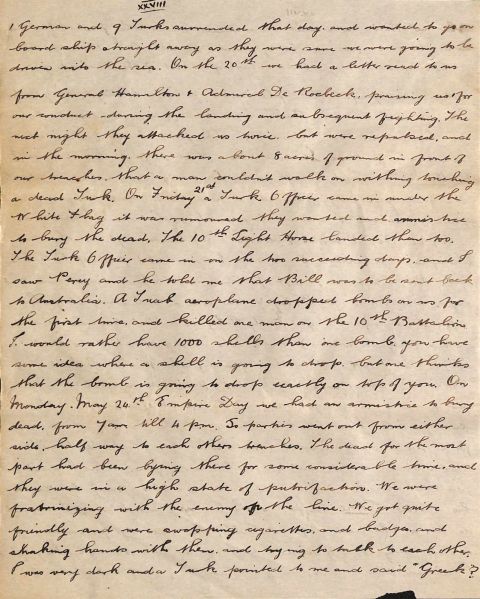 XXVIII
1 German and 9 Turks surrendered that day, and wanted to go on
board ship straight away as they were sure we were going to be
driven into the sea. On the 20th we had a letter read to us
from General Hamilton & Admiral De Roebeck, praising us for
our conduct during the landing and subsequent fighting. The
next night they attacked us twice, but were repulsed, and
in the morning, there was about 8 acres of ground in front of
our trenches, that a man couldn't walk on withing touching
a dead Turk. On Friday 21st a Turk Officer came in under the
White Flag it was rumoured they wanted and armistice
to bury the dead. The 10th Light Horse landed then too.
The Turk Officer came in on the two succeeding days, and I
saw Percy and he told me that Bill was to be sent back
to Australia. A Turk aeroplane dropped bombs on us for
the first time, and killed one man on the 10th Battalion
I would rather have 1000 shells than one bomb, you have
some idea where a shell is going to drop. but one thinks
that the bomb is going to drop exactly on top of you. On
Monday. May 24th Empire Day we had an armistice to bury
dead, from 7am till 4 pm. So parties went out from either
side, half way to each others trenches. The dead for the most
part had been lying there for some considerable time, and
they were in a high state of putrifaction. We were
fratrinizing with the enemy on the line. We got quite
friendly and were swapping cigarettes, and badges, and
shaking hands with them, and trying to talk to each other.
I was very dark and a Turk pointed to me and said "Greek"?